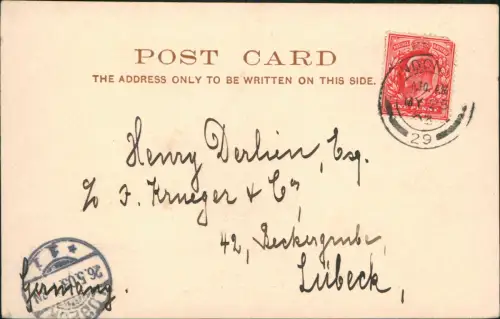 POST CARD
THE ADDRESS ONLY TO BE WRITTEN ON THIS SIDE.
MY 25
03
29
Henry Derlien, Esq.
c/o F. Krueger & Co,
42, Beckergrube,
Lübeck,
Germany.
26.5.03